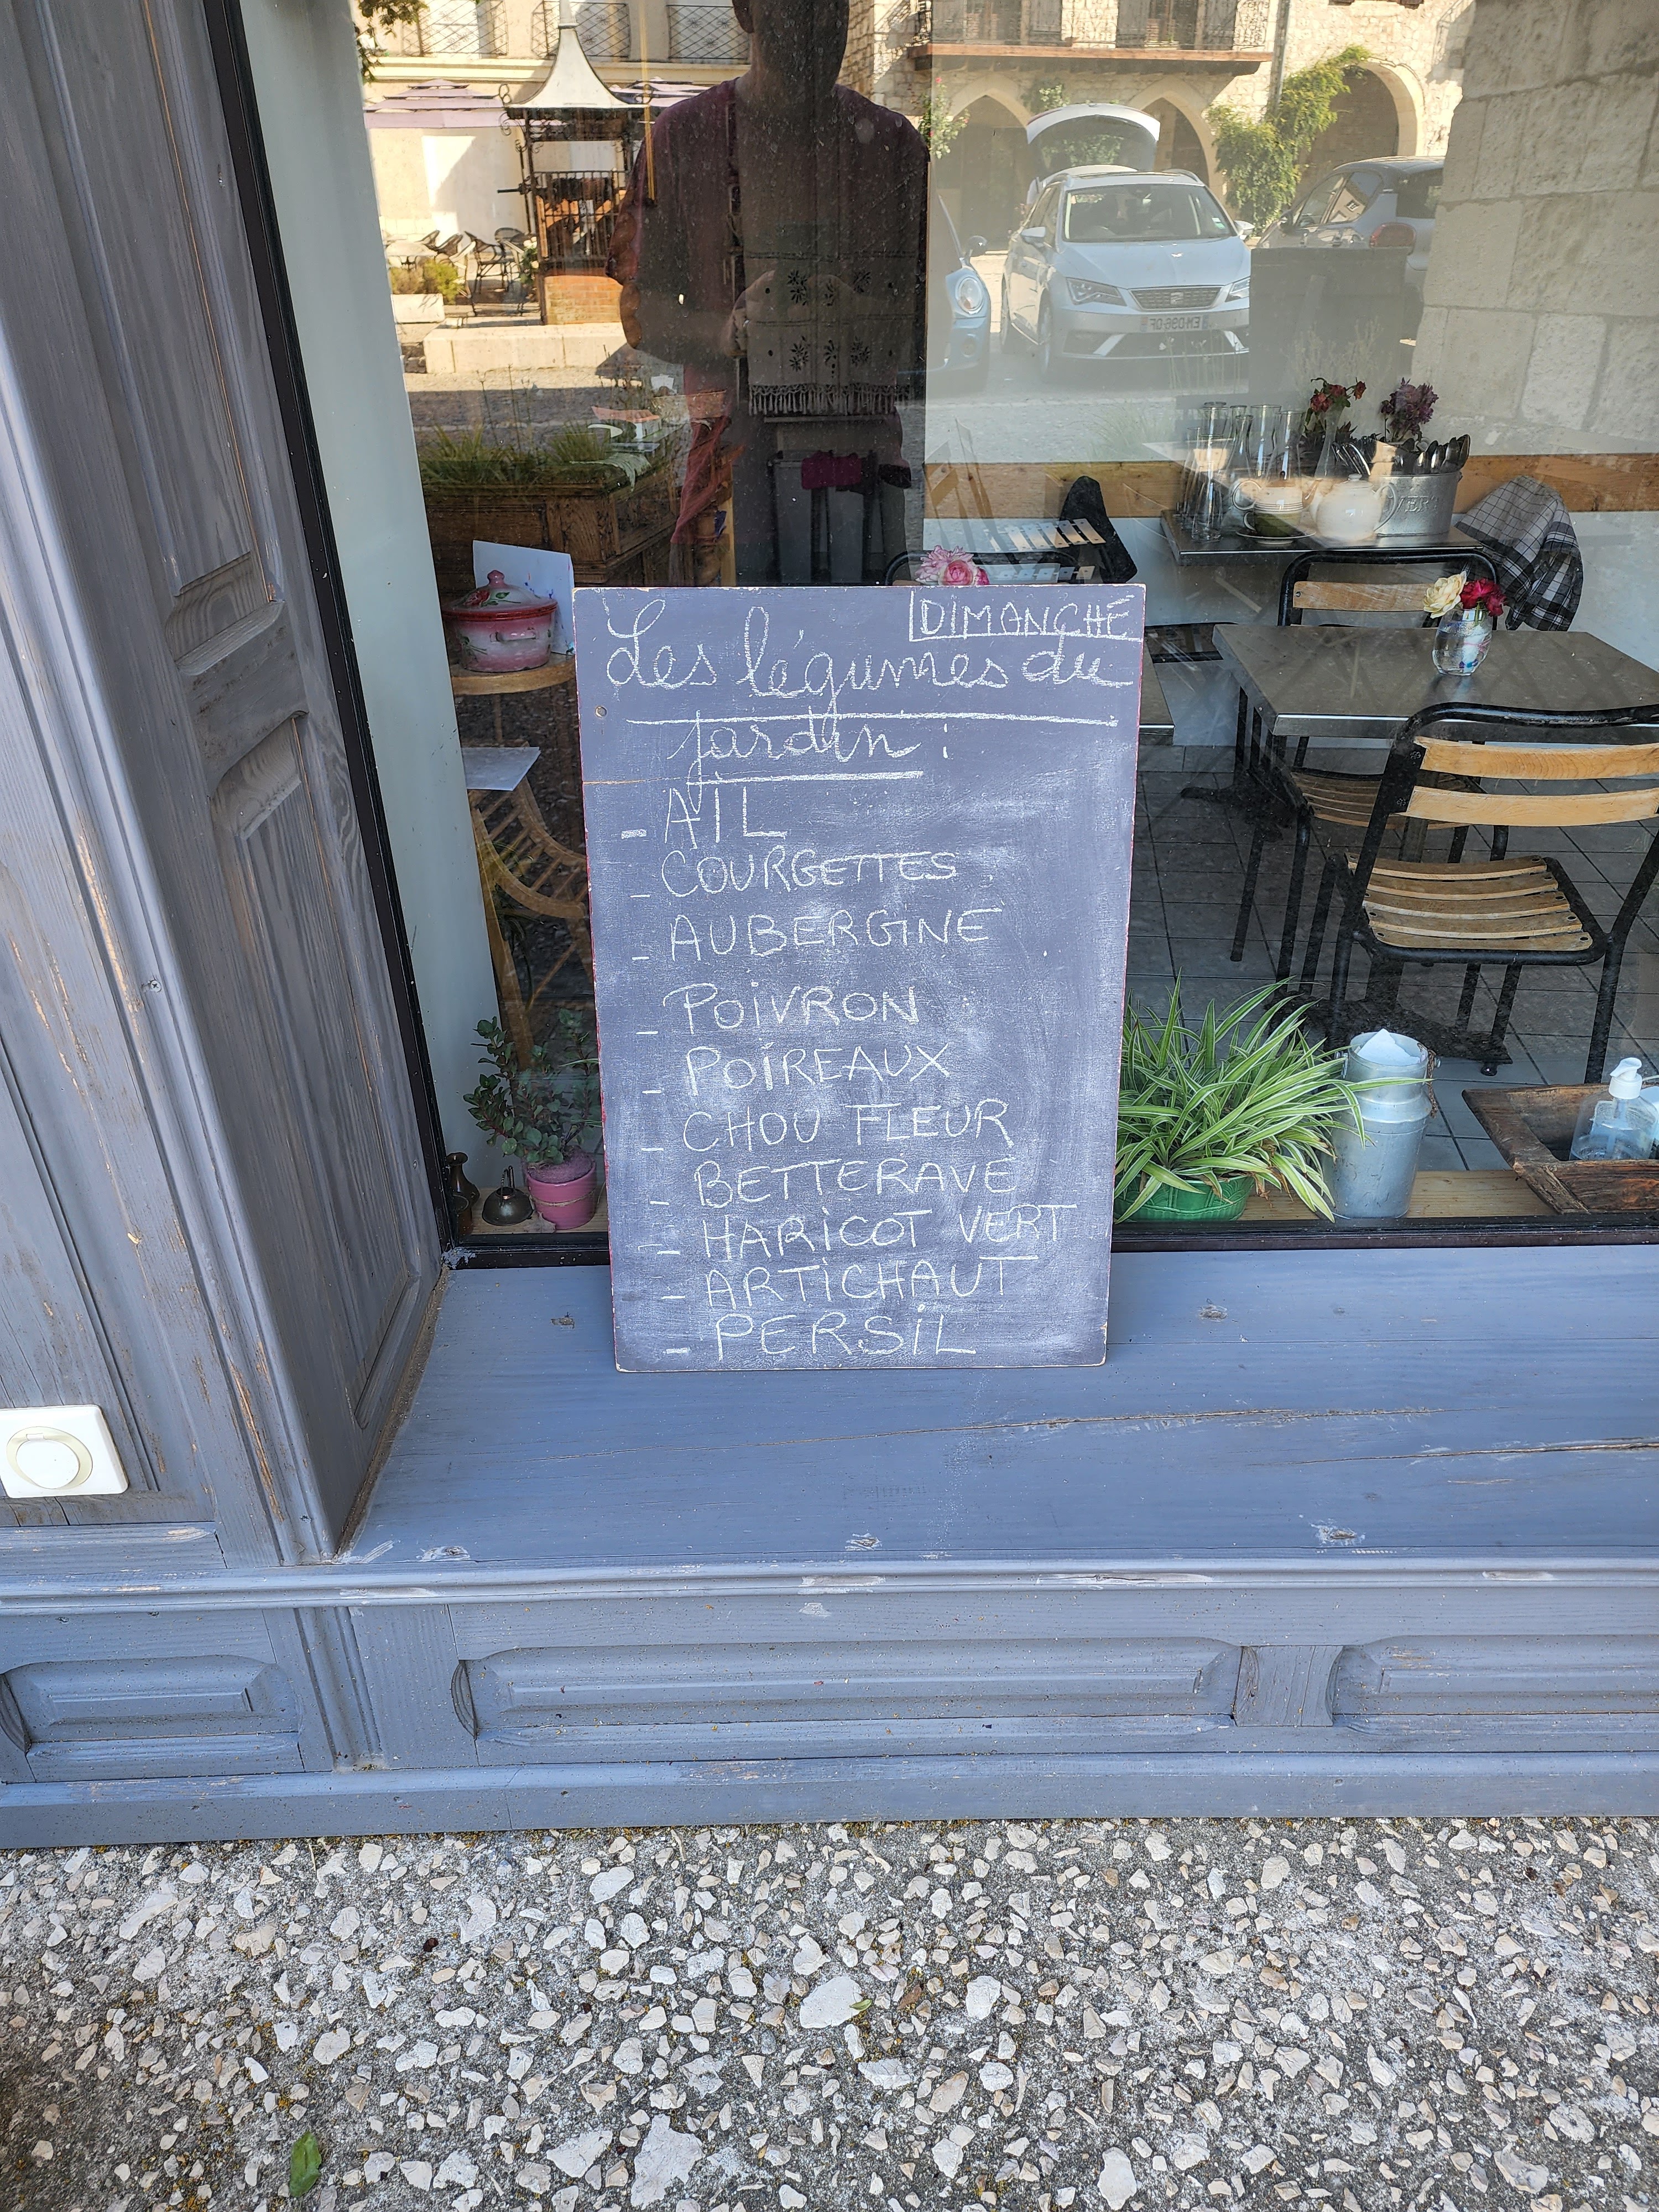 DIMANCHE
Les légumes du
jardin :
- AIL
- COURGETTES
- AUBERGINE
- POIVRON
- POIREAUX
- CHOU FLEUR
- BETTERAVE
- HARICOT VERT
- ARTICHAUT
- PERSIL